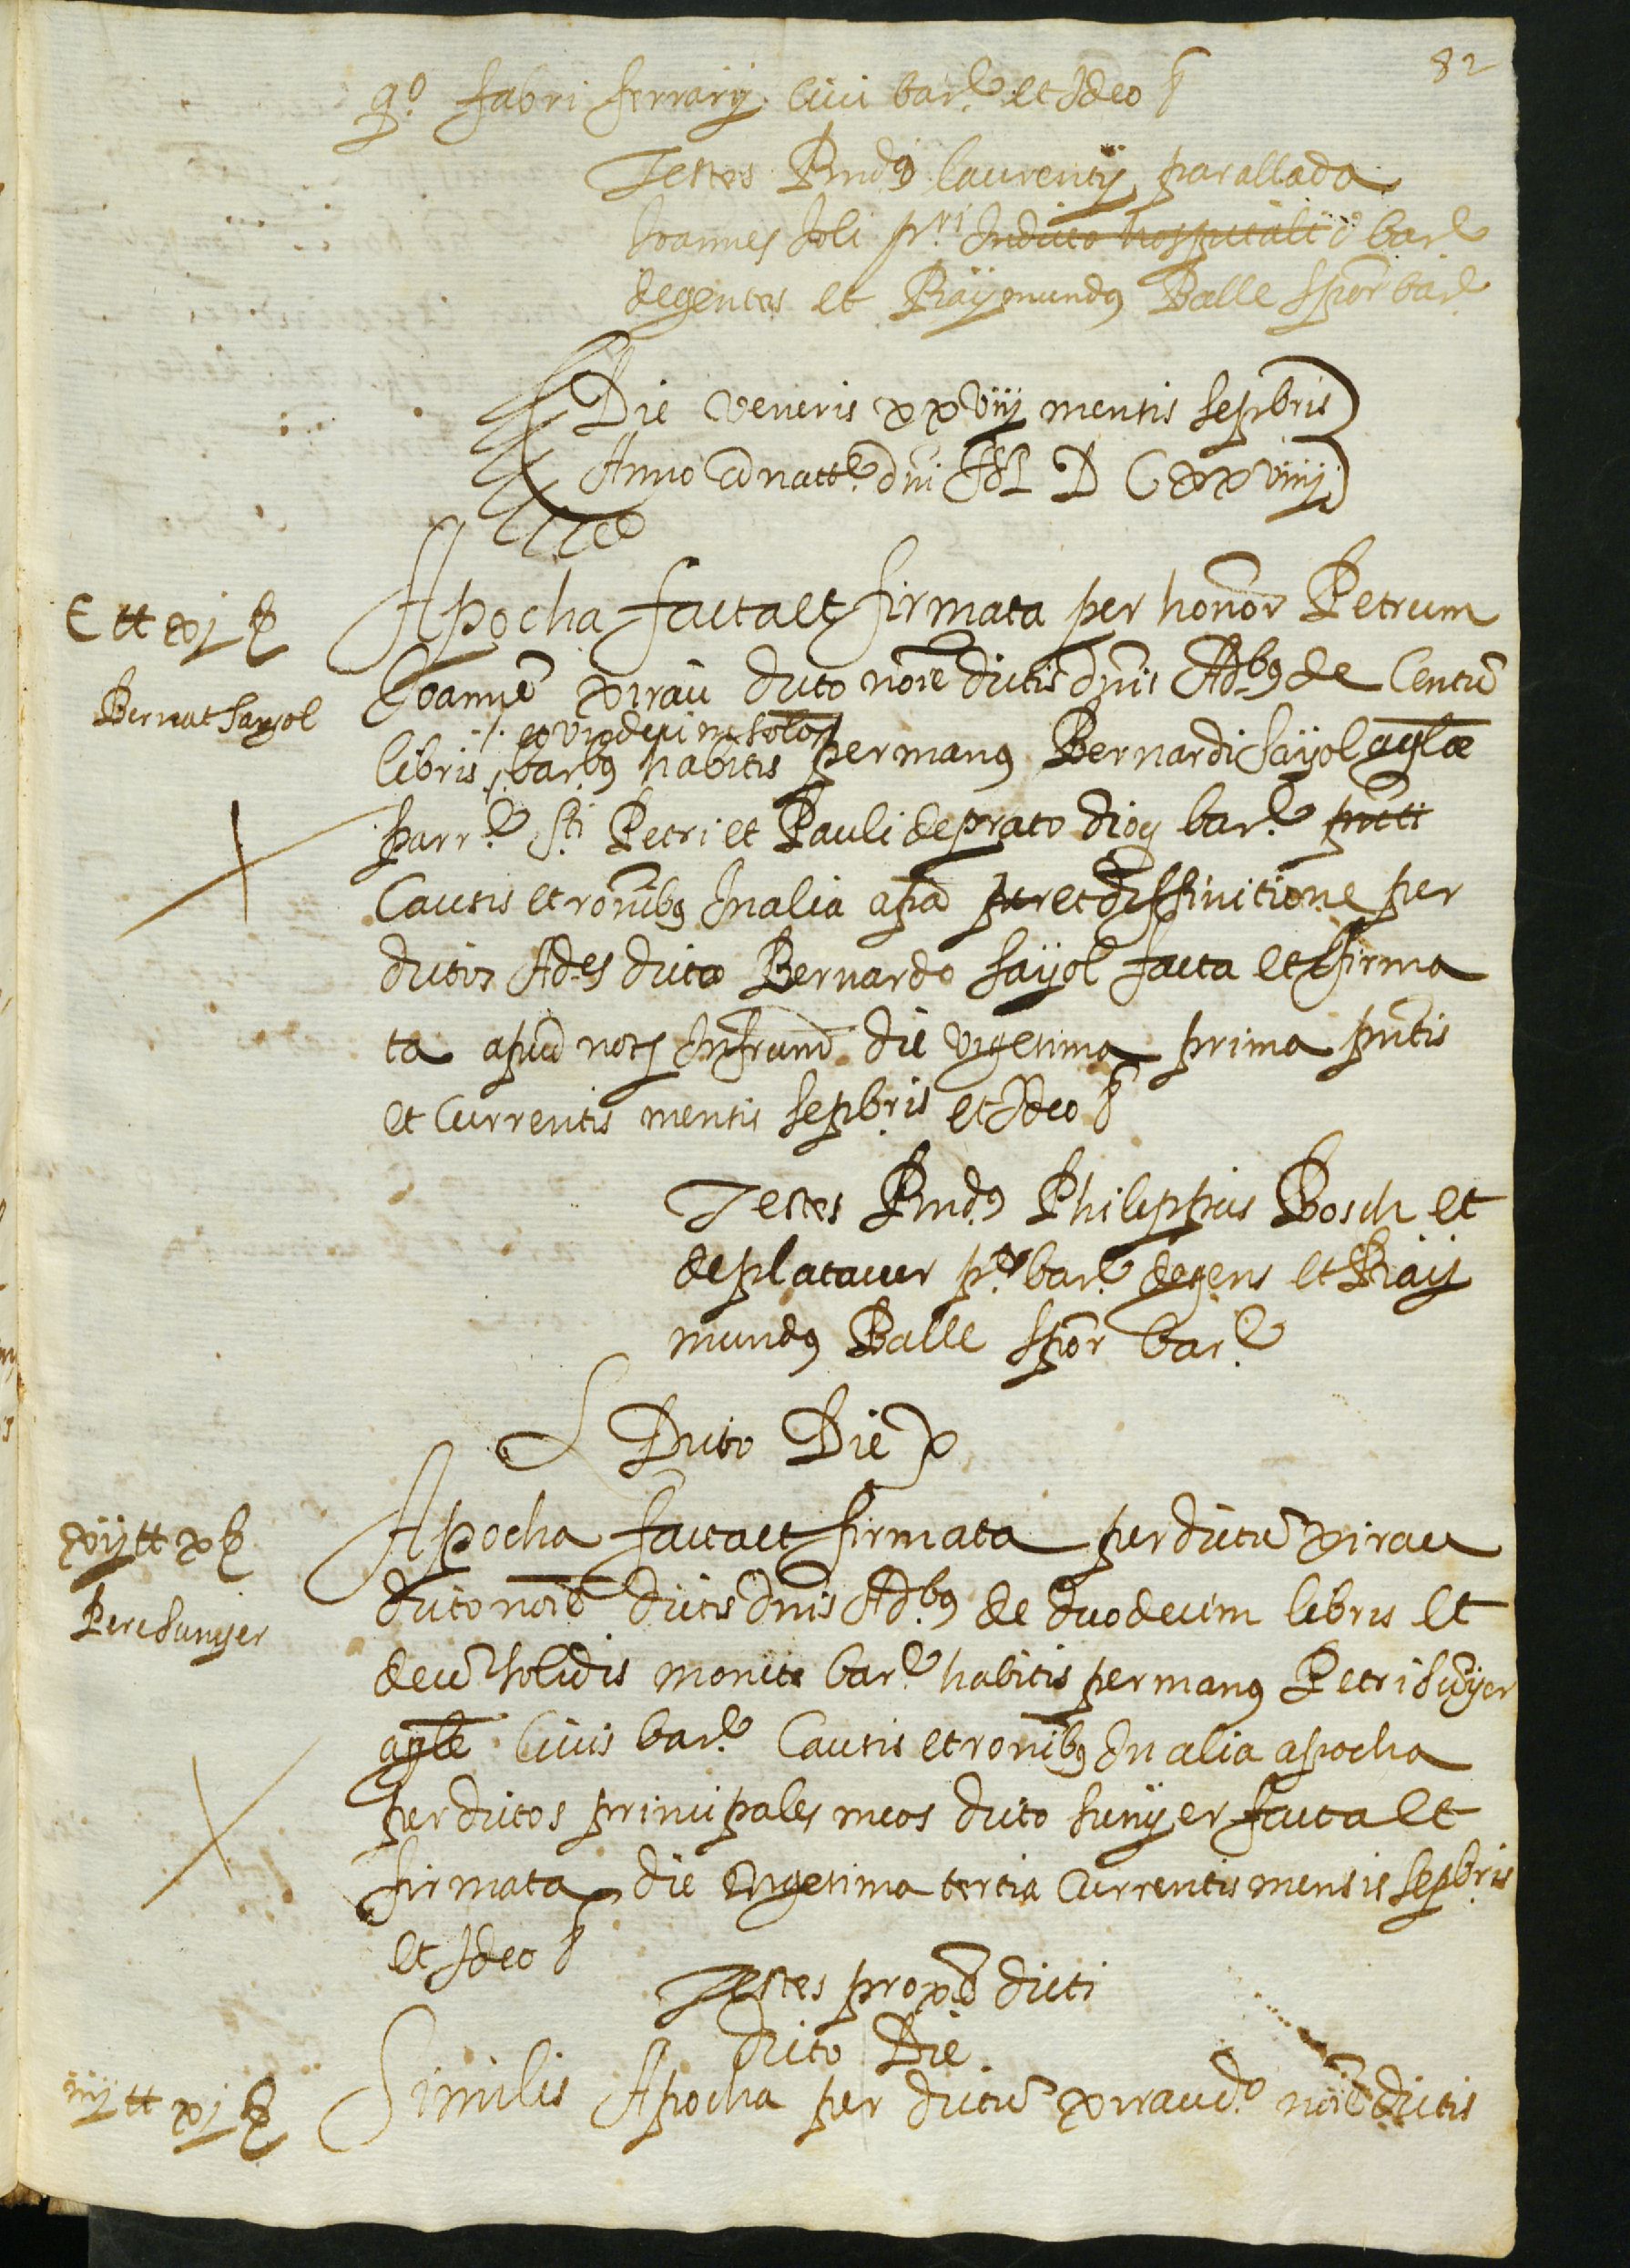 82
qo. fabri ferrarij civi bar.e et Ideo &
Testes Rnd9 Laurentij parallada
Joannes Joli pri In dicto hospitali bar.e
degentes et Raijmund9 Balle spor bar.e
Die veneris xxviiij mensis sepbris
Anno a natte dni M D C xxviiij
Apocha facta et firmata per honor Petrum
C tt xj ß
Joanne xirau dicto noie dictis dnis Adb9 de Centu
Bernat Sayol
et undecim solos
libris barb9 habitis per man9 Bernardi Sayol agle
parre Sti Petri et Pauli de prato dioy bar.e pnti
Causis et ronib9 In alia apa per et diffinitione per
dictos Ades dicto Bernardo Sayol facta et firma
ta apud not Infrum die vigesima prima pntis
et Currentis mensis sepbris et Ideo &
Testes Rnd9 Philippus Bosch et
de platacuer pr bar.e degens et Raij
mund9 Balle spor bar.e
Dicto Die
Apocha facta et firmata per dictu xirau
xij tt x ß
dicto noie dictis dnis Adb9 de duodecim libris et
Pere Sunyer
decem solidis monete bar.e habitis per man9 Petri Suñyer
agle Civis bar.e Causis et ronib9 In alia apocha
per dictos principales meos dicto Sunyer facta et
firmata die vigesima tertia Currentis mensis sepbris
et Ideo &
Testes proxe dicti
Dicto Die
iiij tt xj ß
Similis Apocha per dictu xirau do noie dictis